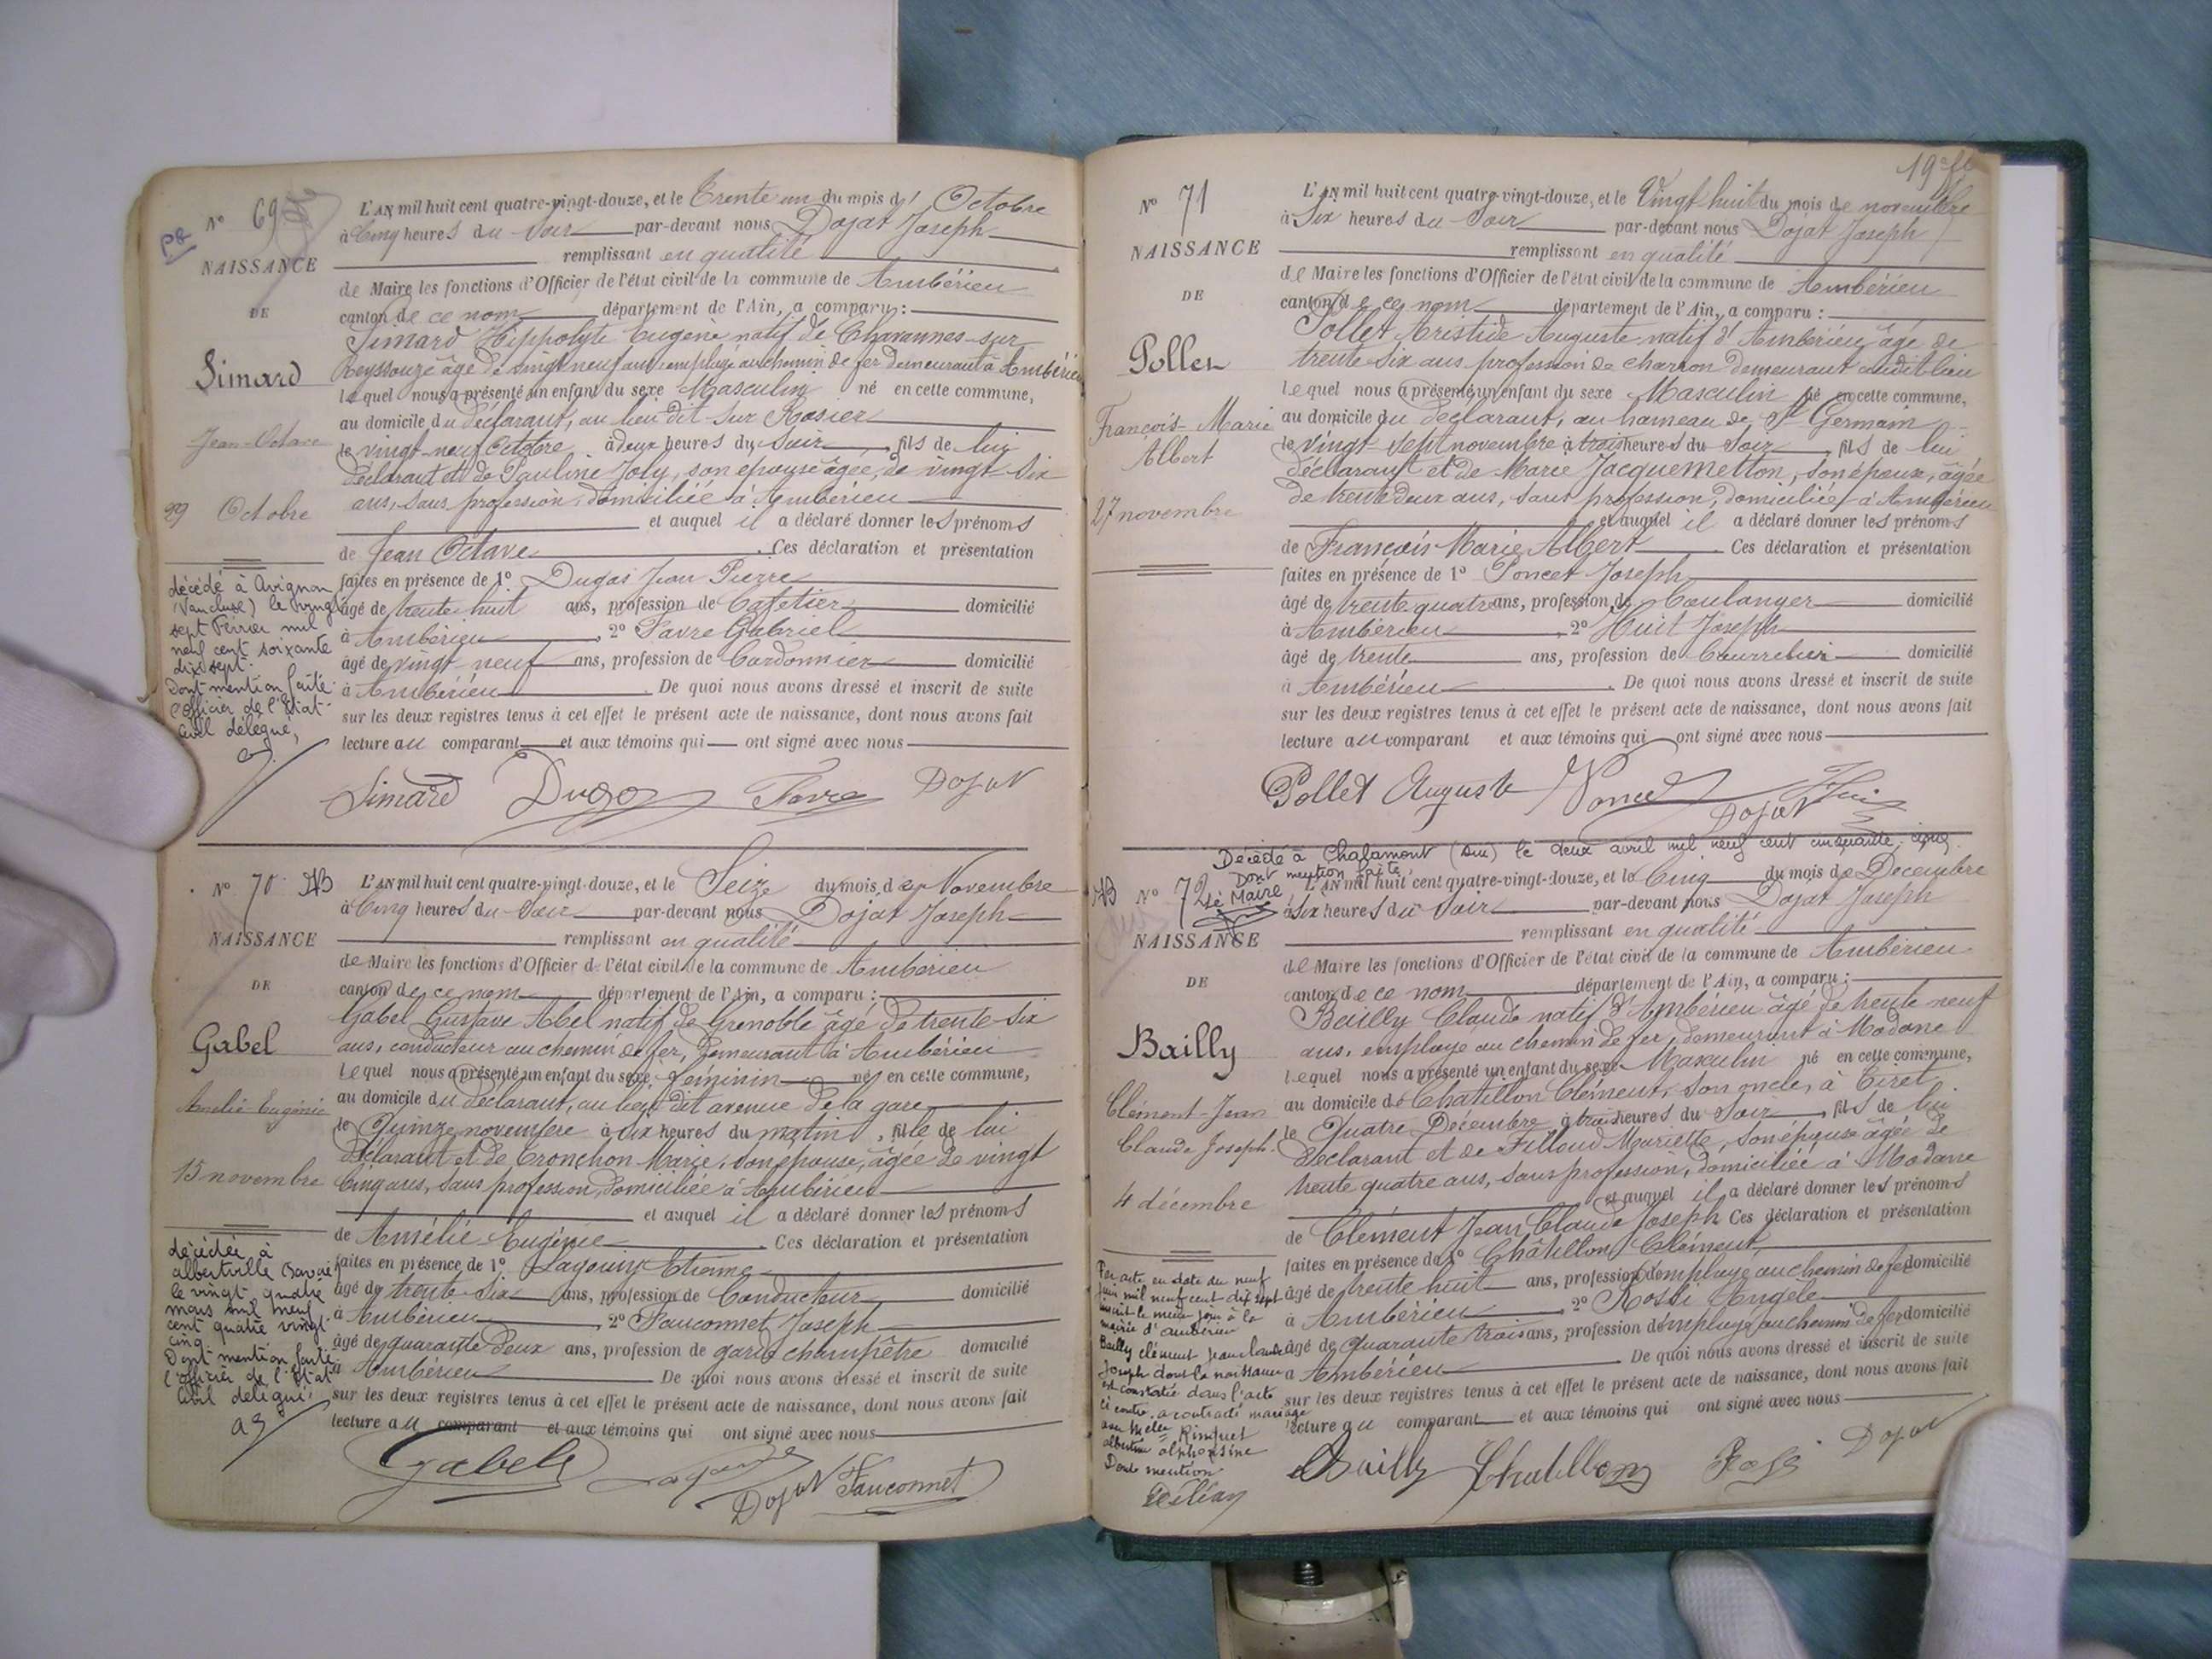 P8
N° 69
NAISSANCE
DE
Simard
Jean-Octave
29 Octobre
décédé à Avignon
(Vaucluse) le vingt
sept Février mil
neuf cent soixante
dix sept.
Dont mention faite
l'officier de l'Etat-
Civil délégué,
L'AN mil huit cent quatre-vingt-douze, et le Trente un du mois d' Octobre
à Cinq heures du Soir par-devant nous Dojat Joseph
remplissant en qualité
de Maire les fonctions d'Officier de l'état civil de la commune de Ambérieu
canton de ce nom département de l'Ain, a comparu :
Simard Hippolyte Eugène natif de Chavannes-sur
Reyssouze âgé de vingt neuf ans employé au chemin de fer demeurant à Ambérieu
lequel nous a présenté un enfant du sexe Masculin né en cette commune,
au domicile du déclarant, au lieu dit sur Rosier
le vingt-neuf Octobre à deux heures du Soir, fils de lui
déclarant et de Pauline Joly, son épouse âgée, de vingt-six
ans, sans profession, domiciliée à Ambérieu
et auquel il a déclaré donner les prénoms
de Jean Octave. Ces déclaration et présentation
faites en présence de 1° Dugas Jean Pierre
âgé de trente-huit ans, profession de Cafetier domicilié
à Ambérieu, 2° Favre Gabriel
âgé de vingt neuf ans, profession de Cordonnier domicilié
à Ambérieu. De quoi nous avons dressé et inscrit de suite
sur les deux registres tenus à cet effet le présent acte de naissance, dont nous avons fait
lecture au comparant et aux témoins qui ont signé avec nous
Simard Dugas Favre Dojat
N° 70 AB
NAISSANCE
DE
Gabel
Amélie Eugénie
15 novembre
décédée à
albertville Savoie
le vingt quatre
mars mil neuf
cent quatre vingt
cinq
Dont mention faite
l'officier de l'Etat
Civil délégué,
L'AN mil huit cent quatre-vingt-douze, et le Seize du mois de Novembre
à Cinq heures du Soir par-devant nous Dojat Joseph
remplissant en qualité
de Maire les fonctions d'Officier de l'état civil de la commune de Ambérieu
canton de ce nom département de l'Ain, a comparu :
Gabel Gustave Abel natif de Grenoble âgé de trente-six
ans, conducteur au chemin de fer, demeurant à Ambérieu
lequel nous a présenté un enfant du sexe féminin né en cette commune,
au domicile du déclarant, au lieu dit avenue de la gare
le Quinze novembre à dix heures du matin, fille de lui
déclarant et de Tronchon Marie, son épouse, âgée de vingt
Cinq ans, sans profession, domiciliée à Ambérieu
et auquel il a déclaré donner les prénoms
de Amélie-Eugénie. Ces déclaration et présentation
faites en présence de 1° Etienne
âgé de trente-six ans, profession de Conducteur domicilié
à Ambérieu, 2° Fauconnet Joseph
âgé de quarante deux ans, profession de garde champêtre domicilié
à Ambérieu De quoi nous avons dressé et inscrit de suite
sur les deux registres tenus à cet effet le présent acte de naissance, dont nous avons fait
lecture au comparant et aux témoins qui ont signé avec nous
Gabel Dojat Fauconnet
N° 71
NAISSANCE
DE
Pollet
François-Marie
Albert
27 novembre
L'AN mil huit cent quatre-vingt-douze, et le Vingt huit du mois de novembre
à Six heures du Soir par-devant nous Dojat Joseph
remplissant en qualité
de Maire les fonctions d'Officier de l'état civil de la commune de Ambérieu
canton de ce nom département de l'Ain, a comparu :
Pollet Aristide Auguste natif d'Ambérieu âgé de
trente-six ans profession de charron demeurant audit lieu
lequel nous a présenté un enfant du sexe Masculin né en cette commune,
au domicile du déclarant, au hameau de St Germain
le vingt-sept novembre à trois heures du Soir, fils de lui
déclarant et de Marie Jacquemetton, son épouse, âgée
de trente deux ans, sans profession, domiciliée à Ambérieu
et auquel il a déclaré donner les prénoms
de François Marie Albert. Ces déclaration et présentation
faites en présence de 1° Poncet Joseph
âgé de trente quatre ans, profession de Boulanger domicilié
à Ambérieu, 2° Huit Joseph
âgé de trente ans, profession de Bourrelier domicilié
à Ambérieu. De quoi nous avons dressé et inscrit de suite
sur les deux registres tenus à cet effet le présent acte de naissance, dont nous avons fait
lecture au comparant et aux témoins qui ont signé avec nous
Pollet Auguste Poncet Huit
Dojat
Décédé à Chalamont (Ain) le deux avril mil neuf cent cinquante cinq.
Dont mention faite
Le Maire
AB N° 72
NAISSANCE
DE
Bailly
Clément-Jean
Claude Joseph.
4 décembre
Par acte en date du neuf
juin mil neuf cent dix sept
inscrit le même jour à la
mairie d'Ambérieu
Bailly clément Jean claude
Joseph dont la naissance
est constatée dans l'acte
ci contre, a contracté mariage
avec Melle Rimquet
albertine alphonsine
Dont mention
L'AN mil huit cent quatre-vingt-douze, et le Cinq du mois de Décembre
à Six heures du Soir par-devant nous Dojat Joseph
remplissant en qualité
de Maire les fonctions d'Officier de l'état civil de la commune de Ambérieu
canton de ce nom département de l'Ain, a comparu :
Bailly Claude natif d'Ambérieu âgé de trente neuf
ans, employé au chemin de fer, demeurant à Modane
lequel nous a présenté un enfant du sexe Masculin né en cette commune,
au domicile de Chatillon Clément, son oncle, à Tiret
le Quatre Décembre à trois heures du Soir, fils de lui
déclarant et de Filloud Mariette, son épouse âgée de
trente quatre ans, sans profession, domiciliée à Modane
et auquel il a déclaré donner les prénoms
de Clément Jean Claude Joseph Ces déclaration et présentation
faites en présence de 1° Châtillon Clément
âgé de trente huit ans, profession d'employé au chemin de fer domicilié
à Ambérieu, 2° Rossi Angele
âgé de quarante trois ans, profession d'employé au chemin de fer domicilié
à Ambérieu De quoi nous avons dressé et inscrit de suite
sur les deux registres tenus à cet effet le présent acte de naissance, dont nous avons fait
lecture au comparant et aux témoins qui ont signé avec nous
Bailly Chatillon Rossi Dojat